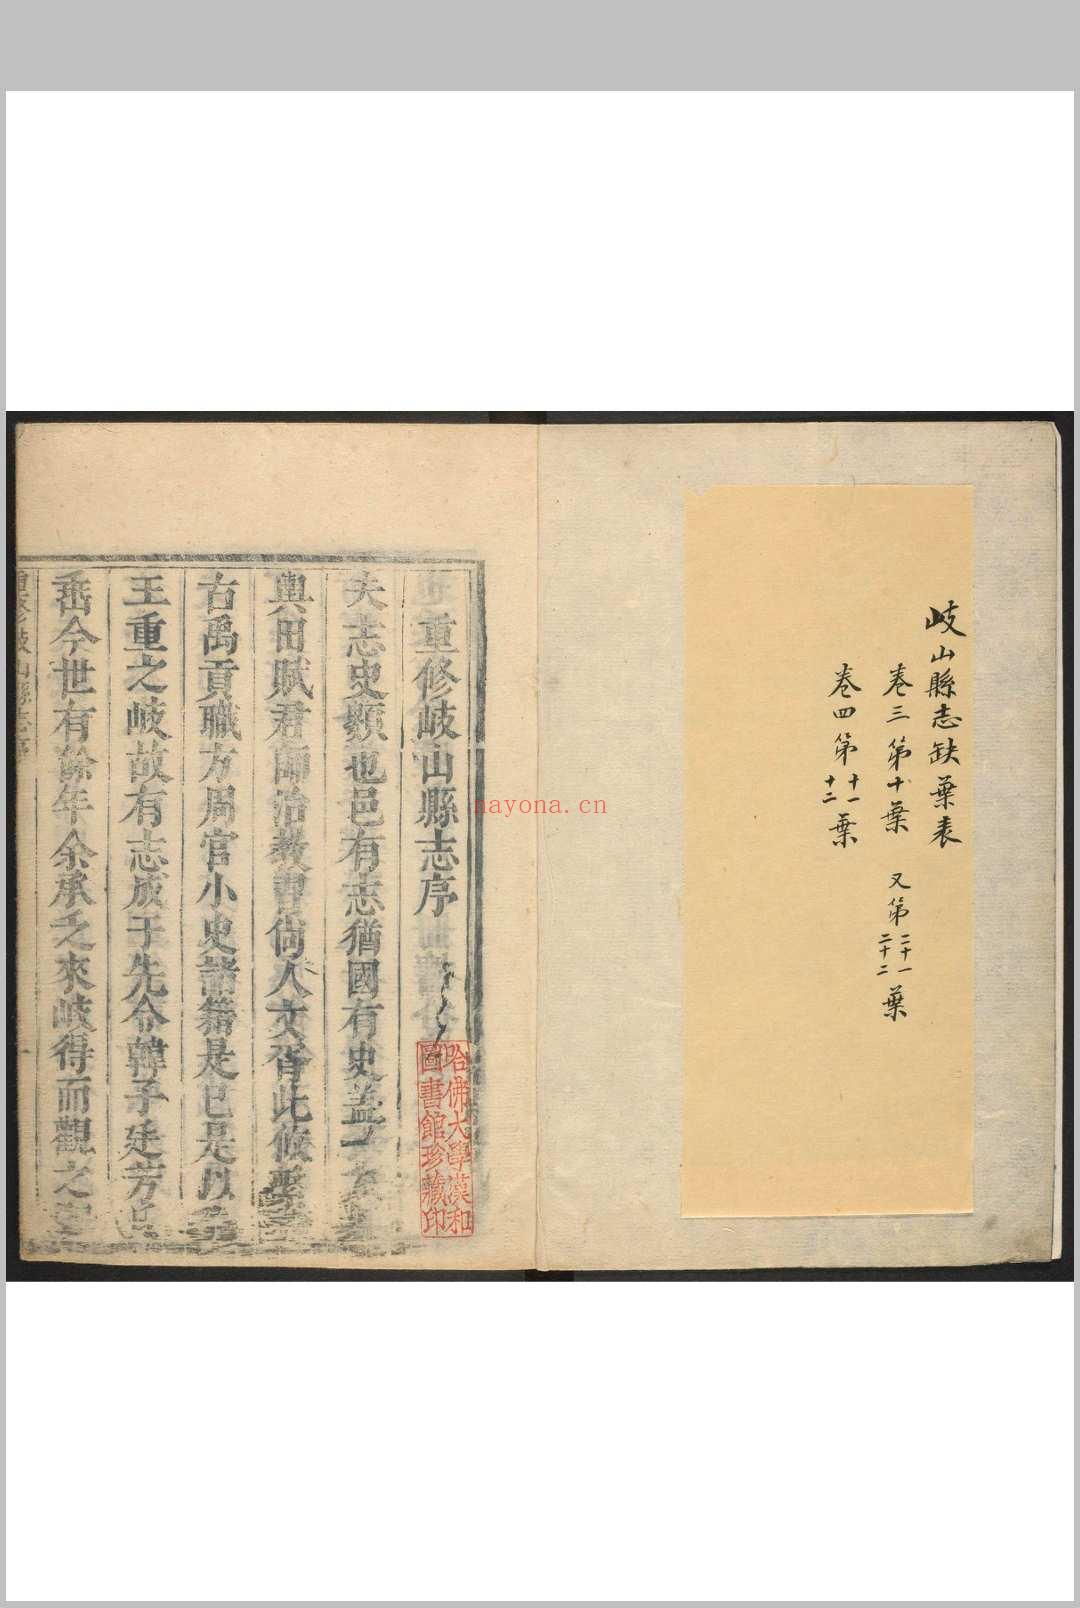 岐山縣志缺葉表
卷三第十葉 又第二十一二十二葉
卷四第十一十二葉
重修岐山縣志序
夫志史類也邑有志猶國有史蓋
輿田賦君師治教曹尚人文胥此攸
古禹貢職方周官小史諸籍是已是以
王重之岐故有志成于先令韓子廷芳
岳今世有餘年余承乏來岐得而觀之
重修岐山縣志序
哈佛大學漢和
圖書館珍藏印
nayona.cn